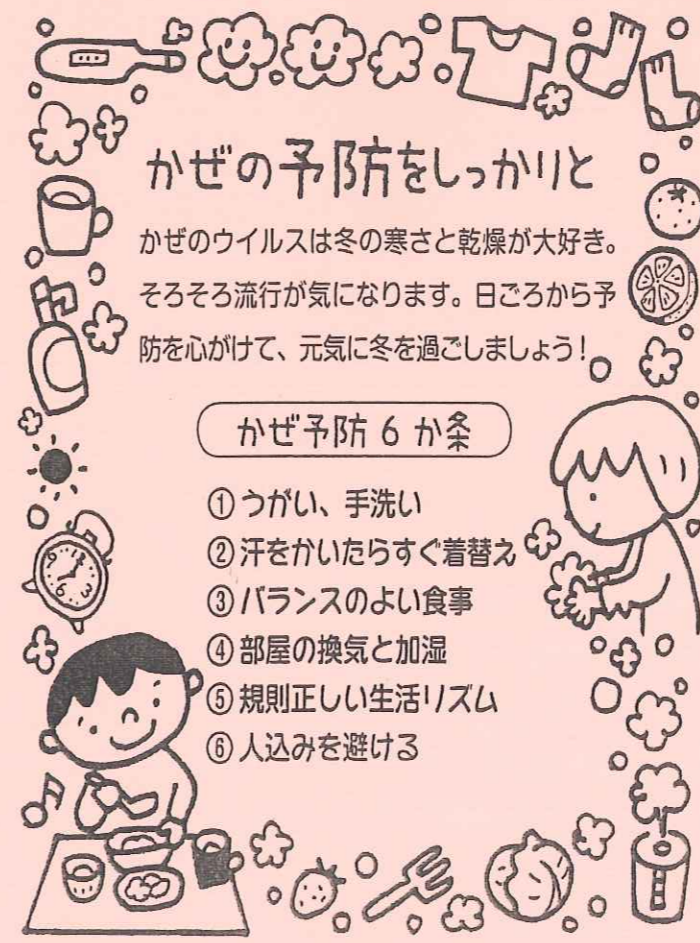 かぜの予防をしっかりと
かぜのウイルスは冬の寒さと乾燥が大好き。
そろそろ流行が気になります。日ごろから予
防を心がけて、元気に冬を過ごしましょう!
かぜ予防6か条
①うがい、手洗い
②汗をかいたらすぐ着替え
③バランスのよい食事
④部屋の換気と加湿
⑤規則正しい生活リズム
⑥人込みを避ける
12
9
3
6